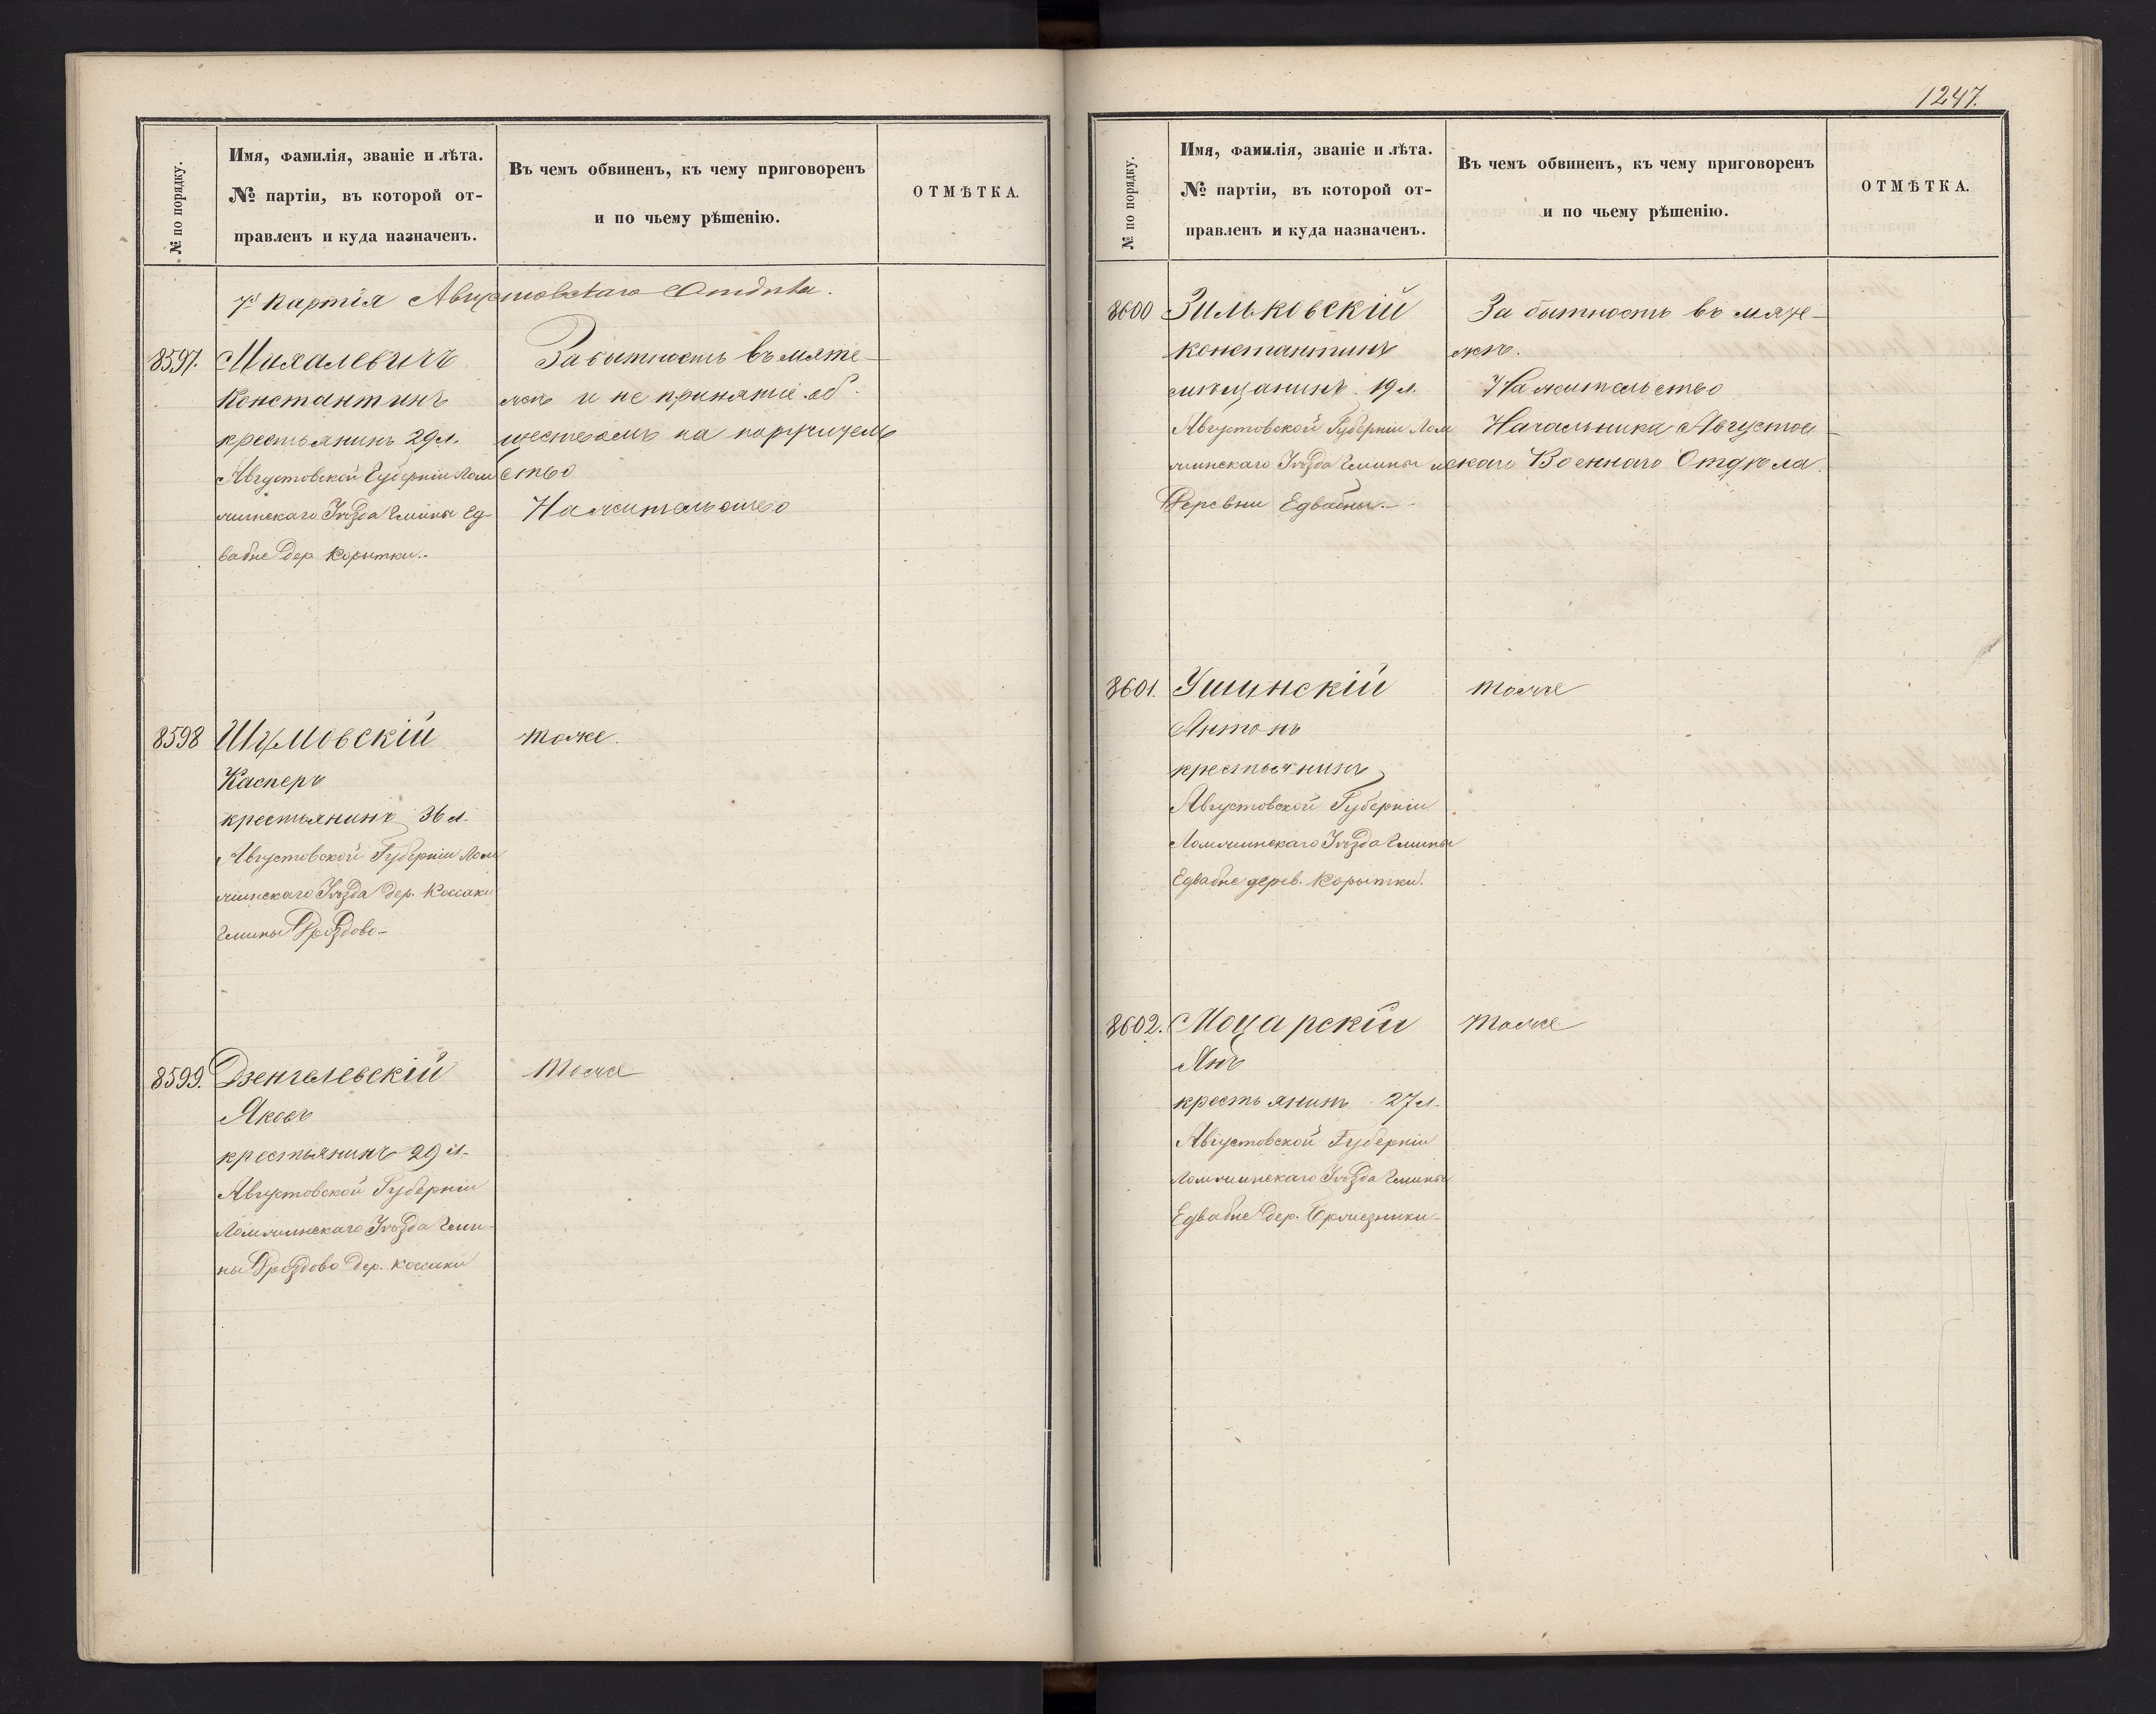 № по порядку.
Имя, фамилія, званіе и лѣта.
№ партіи, въ которой от-
правленъ и куда назначенъ.
Въ чемъ обвиненъ, къ чему приговоренъ
и по чьему рѣшенію.
ОТМѢТКА.
7я партія Августовскаго Отдѣла.
8597.
Михалевичъ
Константинъ
крестьянинъ 29 л.
Августовской Губерніи Лом
жинскаго Уѣзда Гмины Ед-
вабне дер. Корытки.-
За бытность въ мяте-
жѣ и не принятіе об-
ществомъ на поручитель
ство
На жительство
8598
Шумовскій
Касперъ
крестьянинъ 36 л.
Августовской Губерніи Лом
жинскаго Уѣзда дер. Коссаки
Гмины Дроздово-
тоже.
8599.
Дзенгелевскій
Яковъ
крестьянинъ 29 л.
Августовской Губерніи
Ломжинскаго Уѣзда Гми-
ны Дроздово дер. Коссаки
тоже
1247.
№ по порядку.
Имя, фамилія, званіе и лѣта.
№ партіи, въ которой от-
правленъ и куда назначенъ.
Въ чемъ обвиненъ, къ чему приговоренъ
и по чьему рѣшенію.
ОТМѢТКА.
8600
Зильковскій
Константинъ
мѣщанинъ 19 л.
Августовской Губерніи Лом
жинскаго Уѣзда Гмины
Деревни Едвабны.-
За бытность въ мяте-
жѣ.
На жительство
Начальника Августов-
скаго Военнаго Отдѣла.
8601.
Ушинскій
Антонъ
крестьянинъ
Августовской Губерніи
Ломжинскаго Уѣзда Гмины
Едвабне дерев. Корытки.
тоже
8602.
Моцарскій
Янъ
крестьянинъ 27 л.
Августовской Губерніи
Ломжинскаго Уѣзда Гмины
Едвабне дер.
тоже